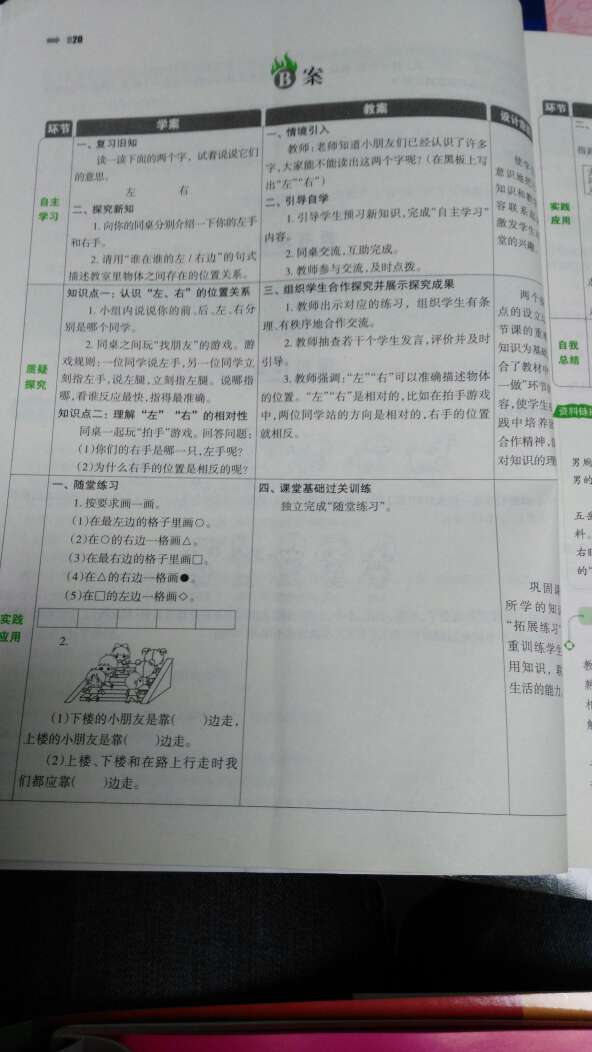 820
B案
环节
学案
教案
设计意
自主
学习
一、复习旧知
读一读下面的两个字，试着说说它们
的意思。
左 右
二、探究新知
1. 向你的同桌分别介绍一下你的左手
和右手。
2. 请用“谁在谁的左/右边”的句式
描述教室里物体之间存在的位置关系。
一、情境引入
教师：老师知道小朋友们已经认识了许多
字，大家能不能读出这两个字呢？（在黑板上写
出“左”“右”）
二、引导自学
1. 引导学生预习新知识，完成“自主学习”
内容。
2. 同桌交流，互助完成。
3. 教师参与交流，及时点拨。
使学
意识地把
知识和教
容联系起
激发学生
堂的兴趣
质疑
探究
知识点一：认识“左、右”的位置关系
1. 小组内说说你的前、后、左、右分
别是哪个同学。
2. 同桌之间玩“找朋友”的游戏。游
戏规则：一位同学说左手，另一位同学立
刻指左手，说左腿，立刻指左腿。说哪指
哪，看谁反应最快，指得最准确。
知识点二：理解“左”“右”的相对性
同桌一起玩“拍手”游戏。回答问题：
(1)你们的右手是哪一只，左手呢？
(2)为什么右手的位置是相反的呢？
三、组织学生合作探究并展示探究成果
1. 教师出示对应的练习，组织学生有条
理、有秩序地合作交流。
2. 教师抽查若干个学生发言，评价并及时
引导。
3. 教师强调：“左”“右”可以准确描述物体
的位置。“左”“右”是相对的，比如在拍手游戏
中，两位同学站的方向是相对的，右手的位置
就相反。
两个
点的设立
节课的重
知识为基
合了教材
一做”环节
容，使学生
践中培养
合作精神，
对知识的理
实践
应用
一、随堂练习
1. 按要求画一画。
(1)在最左边的格子里画○。
(2)在○的右边一格画△。
(3)在最右边的格子里画□。
(4)在△的右边一格画●。
(5)在□的左边一格画◇。
2.
(1)下楼的小朋友是靠( )边走，
上楼的小朋友是靠( )边走。
(2)上楼、下楼和在路上行走时我
们都应靠( )边走。
四、课堂基础过关训练
独立完成“随堂练习”。
巩固
所学的知
“拓展练习”
重训练学生
用知识，
生活的能力
环节
实践
应用
自我
总结
资料链
男厕
男的
五岳
料。
右
的“